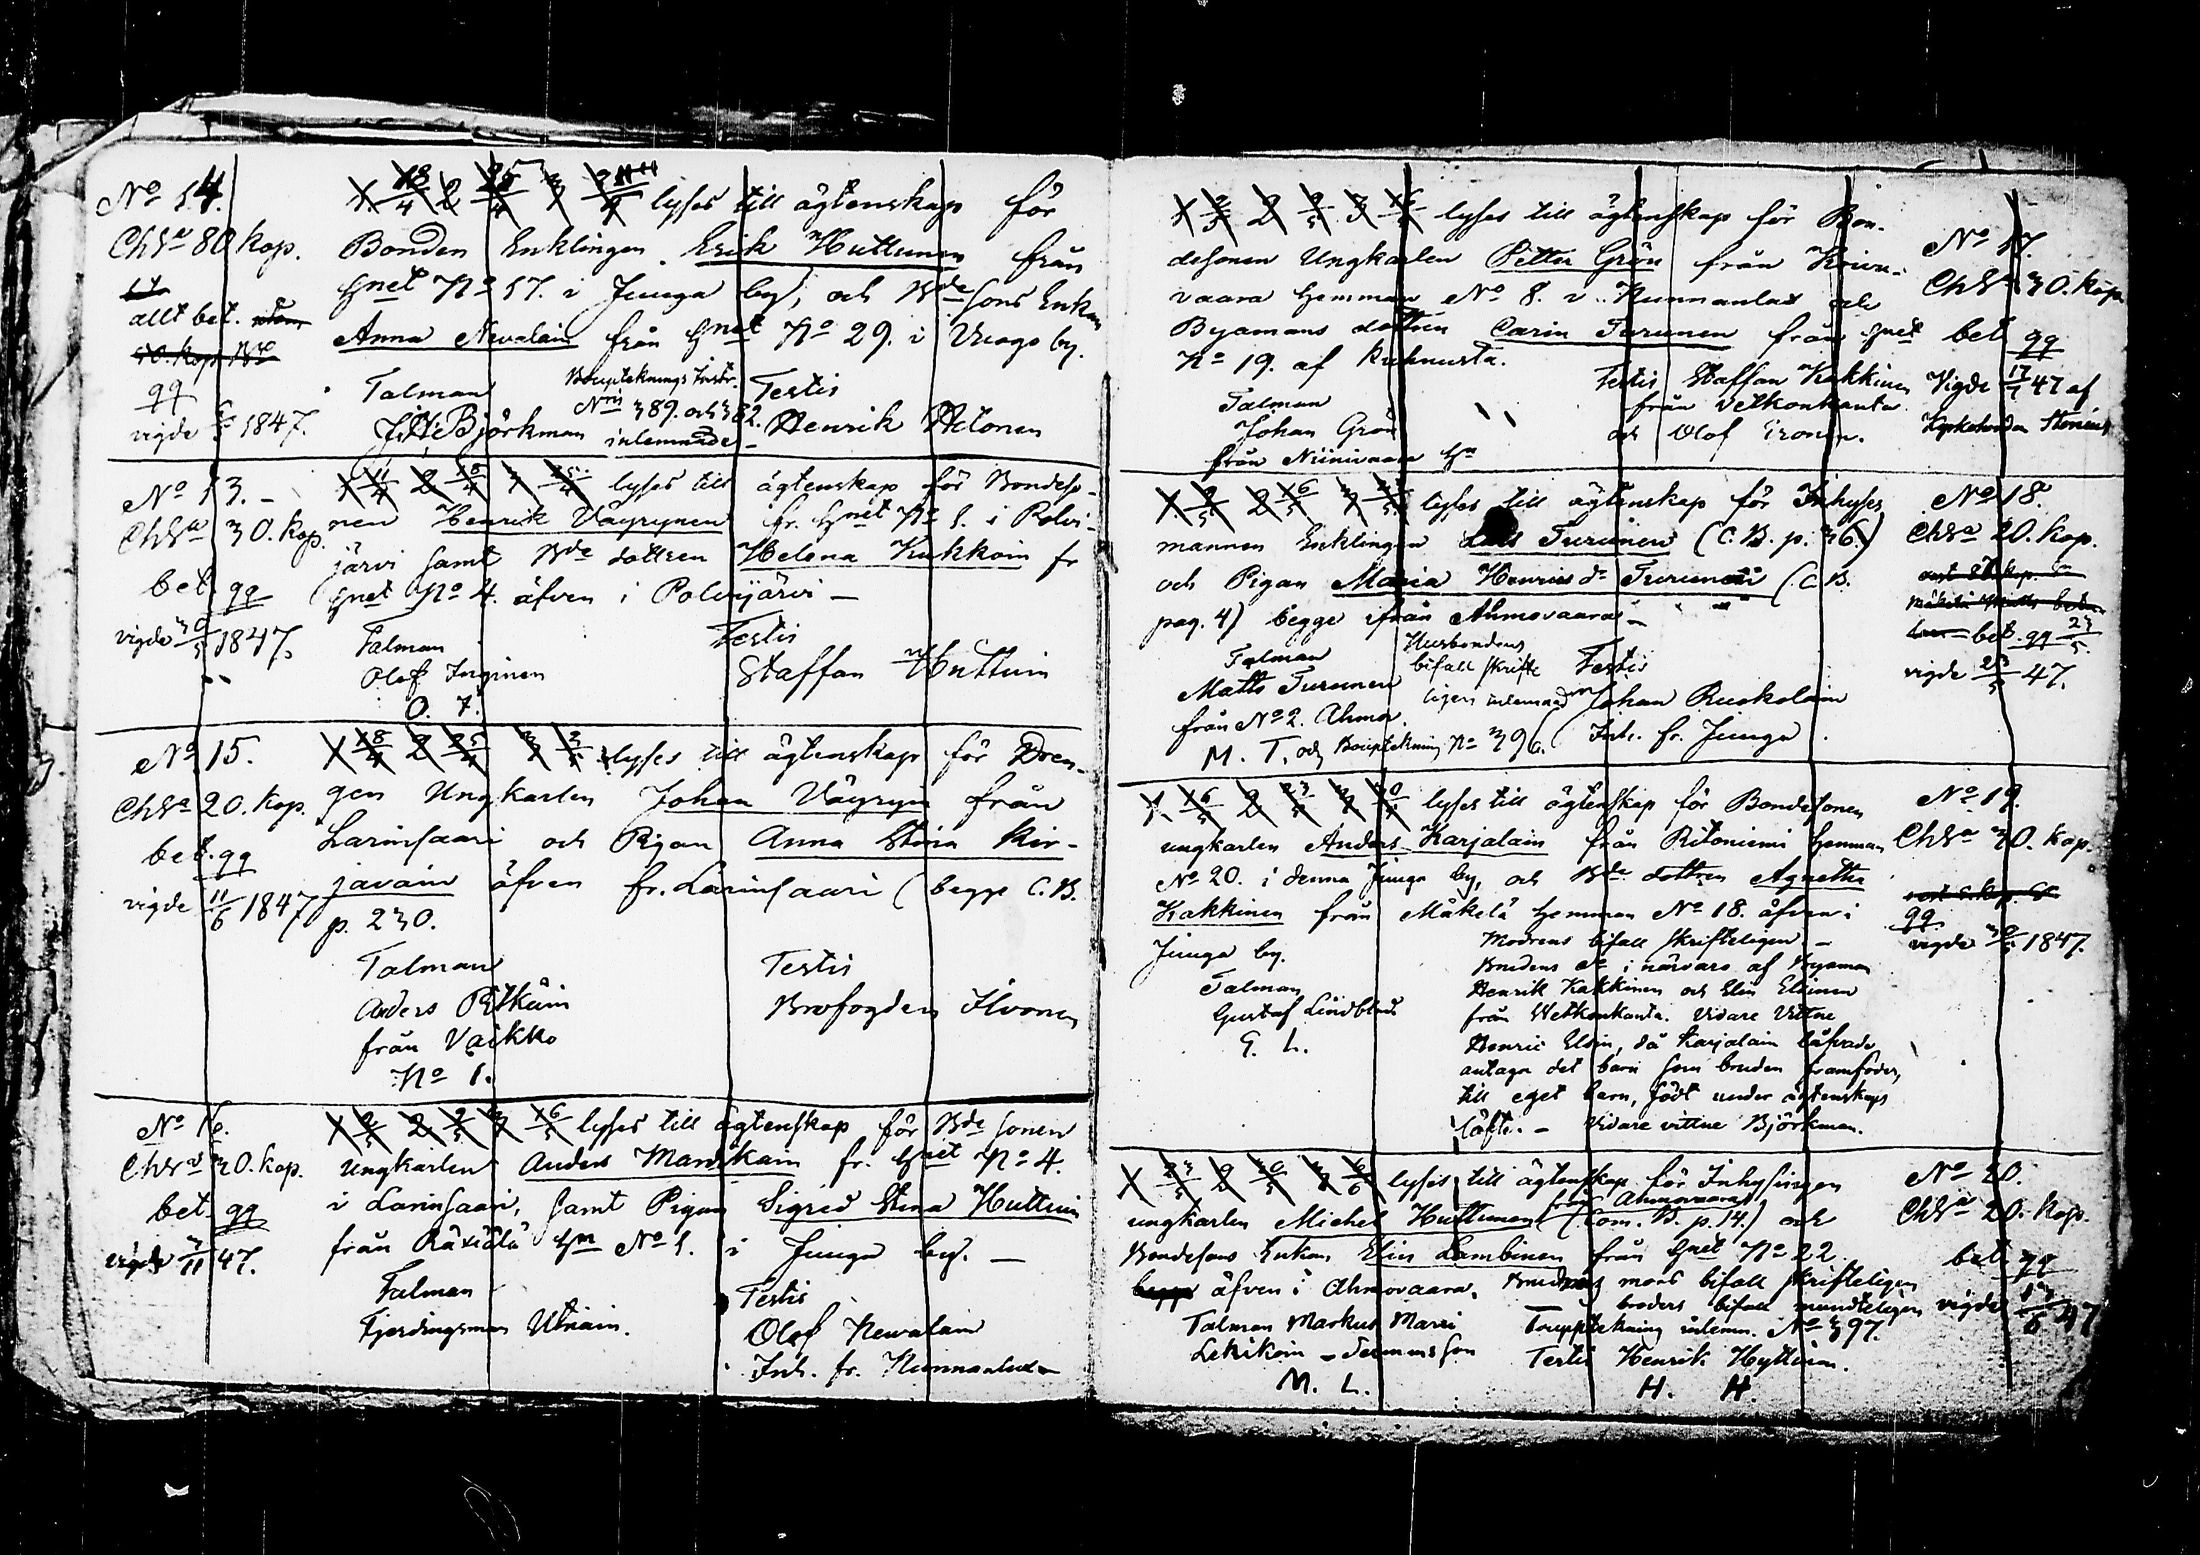 No 14.
Chda 80 kop.
allt bet.
qq
vigde 6/5 1847.
1. 18/4 2 25/4 3 lyses till ägtenskap för
Bonden Enklingen Erik Huttunen från
Hmet No 17. i Juuga by, och Bde sons Enkan
Anna Nevalain från Hmet No 29. i Vuogo by.
Talman
J. H. Björkman
Boupteknings Instr.
Nris 389. och 382.
inlemnade
Testis
Henrik
No 13.
Chda 30. kop.
bet. qq
vigde 30/5 1847.
1 11/4 2 18/4 3 25/4 lyses till ägtenskap för Bondeso-
nen Henrik Väyrynen fr. Hmet No 1. i Polvi-
järvi samt Bde dottren Helena Kukkoin fr
Hmet No 4. äfven i Polvijärvi
Talman
Olof
O. T.
Testis
Staffan Huttuin
No 15.
Chda 20. kop.
bet. qq
vigde 11/6 1847
1 18/4 2 25/4 3 2/5 lyses till ägtenskap för Dren-
gen Ungkarlen Johan Väyryin från
Larinsaari och Pigan Anna Stina Kir-
javain äfven fr. Larinsaari (begge C. B.
p. 230.
Talman
Anders Pitkäin
från Vaikko
No 1.
Testis
Brofogden Ilvonen
No 16.
Chda 30. kop.
bet. qq
vigde 7/11 47.
1 2/5 2 9/5 3 16/5 lyses till ägtenskap för Bde sonen
ungkarlen Anders Manskain fr. Hmet No 4.
i Larinsaari, samt Pigan Sigrid Stina Huttuin
från Räsälä Hmn No 1. i Juuga by.
Talman
Fjerdingsman Utriain.
Testis
Olof Newalain
Inh. fr. Nunnanlax
1 2/5 2 9/5 3 16/5 lyses till ägtenskap för Bon-
desonen Ungkarlen Petter Grön från Koivu-
vaara Hemman No 8. i Nunnanlax och
Byamans dottren Carin Turunen från Hmet
No 19. af Kuhnusta.
Talman
Johan Grön
från Niinivaara Hn
Testis Staffan Kakkinen
från Vetkonkanta
och Olof Ironen.
No 17.
Chda 30. kop
bet qq
Vigde 17/7 47 af
Kyrkoherden Stenius
1 9/5 2 16/5 3 23/5 lyses till ägtenskap för Inhyses
mannen Enklingen Lars Turunen (C. B. p. 36.)
och Pigan Maria Henriks dr Turunen (C. B.
pag. 4) begge ifrån Ahmovaara
Talman
Matts Turunen
från No 2. Ahmo.
M. T. och Bouptekning No 396.
Husbondens
bifall skrift
ligen inlemnad
Testis
Johan Ruokolain
Inh. fr. Juuga
No 18.
Chda 20. kop.
bet. qq 23/5
vigde 23/5 47.
1. 16/5 2 23/5 3 30/5 lyses till ägtenskap för Bondesonen
ungkarlen Anders Karjalain från Ritoniemi Hemman
No 20. i denna Juuga by, och Bde dottren Agnetha
Kakkinen från Mäkelä Hemman No 18. äfven i
Juuga by.
Talman
Gustaf Lindblad
G. L.
Modrens bifall skrifteligen
Brudens do i närvaro af Byaman
Henrik Kakkinen och Elis Eloinen
från Wetkonkanta. Vidare Vittne
Henric Eloin, då Karjalain låfvade
antaga det barn som bruden framföder,
till eget barn, födt under ägtenskaps
löfte. – Vidare vittne Björkman.
No 19.
Chda 30. kop.
qq
vigde 30/5 1847.
1 23/5 2 30/5 3 6/6 lyses till ägtenskap för Inhysingen
ungkarlen Michel Huttunen (från Ahmovaara) (Com. B. p. 14.) och
Bondesons Enkan Elin Lambinen från Hmet No 22
äfven i Ahmovaara. Brudens mors bifall skrifteligen
broders bifall mundteligen
Talman Markus Marri
M. L.
Bouptekning inlemn. No 397.
Testis Henrik Hyttinen.
H. H.
No 20.
Chda 20. kop.
bet qq
vigde 47